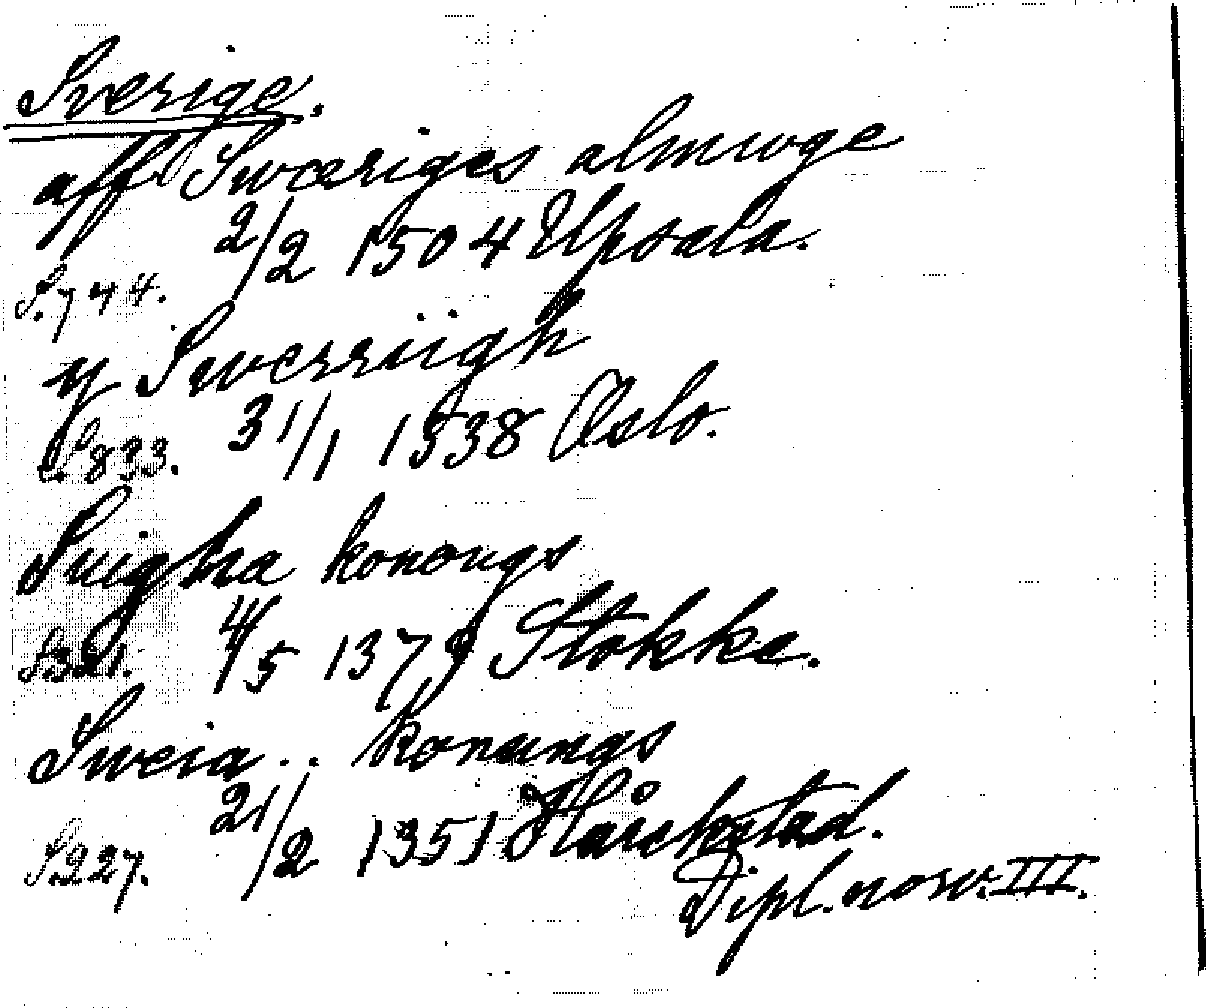 Sverige.
aff Swæriges almwge
2/2 1504 Upsala.
S. 744.
y Swerriigh
S. 833. 31/1 1538 Oslo.
Suigha konongs
S. 321. 4/5 1379 Stokke.
Sweia .. konungs
21/2 1351
S. 227.
Dipl. norv. III.